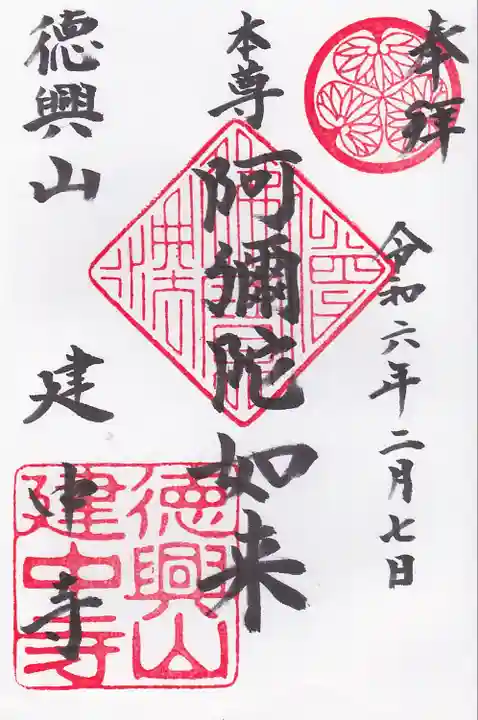 奉拜
令和六年二月七日
本尊
阿彌陀如来
德興山
建中寺
德興山
建中寺